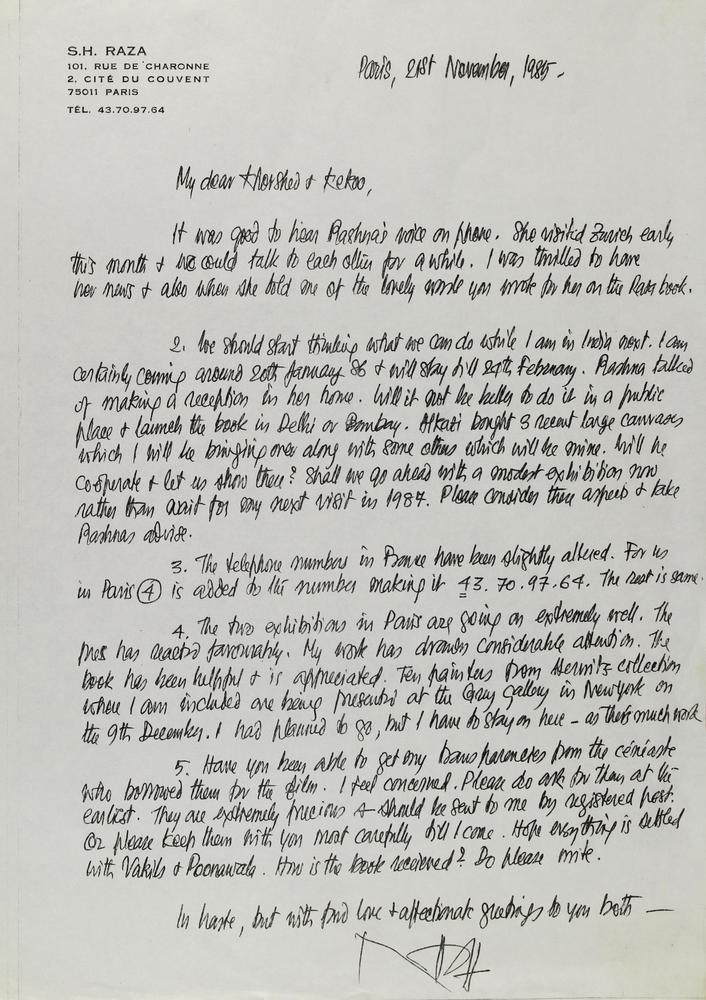 S.H. RAZA
101, RUE DE CHARONNE
2, CITÉ DU COUVENT
75011 PARIS
TÉL. 43.70.97.64
Paris, 21st November, 1985.-
My dear Khorshed & Kekoo,
It was good to hear Rashna's voice on phone. She visited Zurich early
this month & we could talk to each other for a while. I was thrilled to have
her news & also when she told me of the lovely words you wrote for her on the Raza book.
2. We should start thinking what we can do while I am in India next. I am
certainly coming around 20th January 86 & will stay till 24th February. Rashna talked
of making a reception in her home. Will it not be better to do it in a public
place & launch the book in Delhi or Bombay. Alkazi bought 3 recent large canvases
which I will be bringing over along with some others which will be mine. Will he
cooperate & let us show these? Shall we go ahead with a modest exhibition now
rather than wait for my next visit in 1987. Please consider these aspects & take
Rashnas advise.
3. The telephone numbers in France have been slightly altered. For us
in Paris 4 is added to the number making it 43.70.97.64. The rest is same.
4. The two exhibitions in Paris are going on extremely well. The
press has reacted favourably. My work has drawn considerable attention. The
book has been helpful & is appreciated. Ten painters from Herwitz collection
where I am included are being presented at the Grey Gallery in Newyork on
the 9th December. I had planned to go, but I have to stay on here - as there's much work
5. Have you been able to get my transparencies from the cinéaste
who borrowed them for the film. I feel concerned. Please do ask for them at the
earliest. They are extremely precious & should be sent to me by registered post.
Or please keep them with you most carefully till I come. Hope everything is settled
with Vakils & Poonawala. How is the book received? Do please write.
In haste, but with fond love & affectionate greetings to you both —